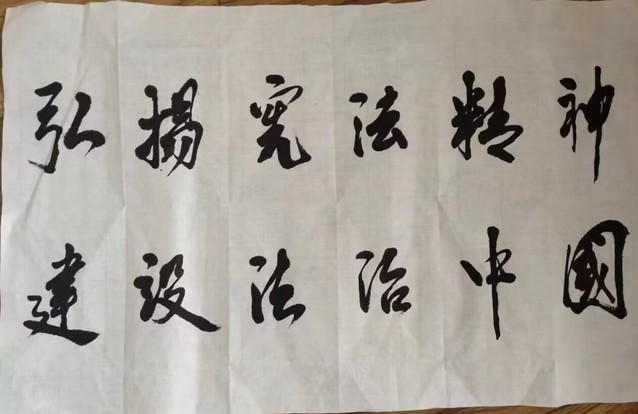 弘揚宪法精神
建设法治中國